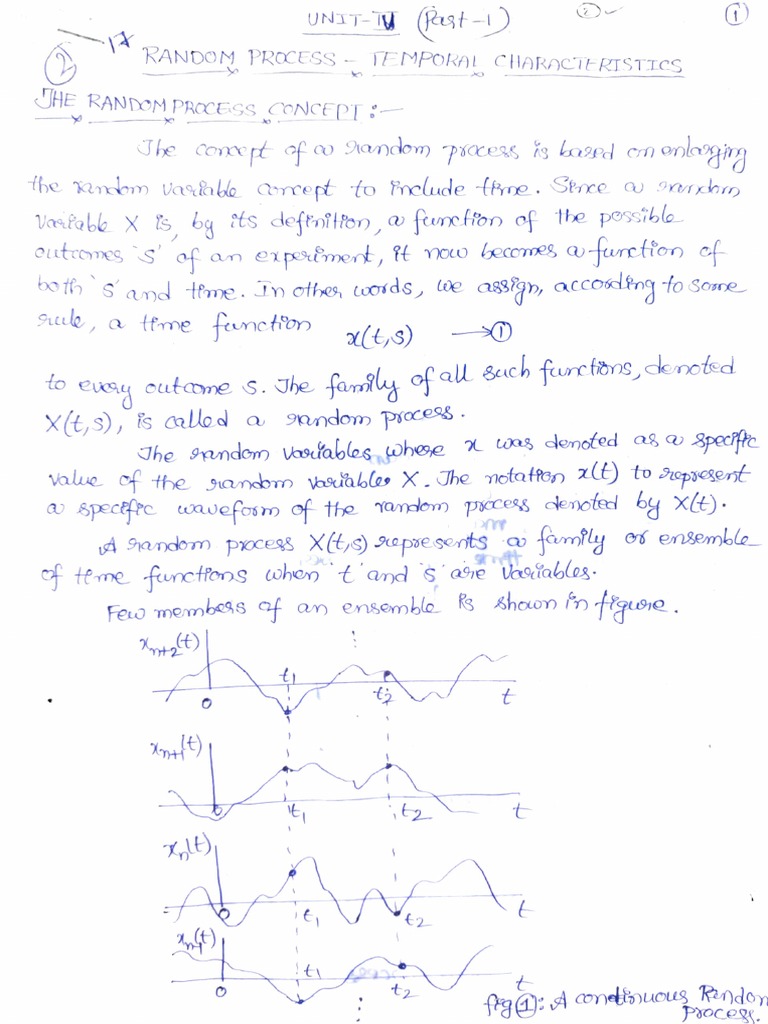 UNIT-IV (Part-1) 2 1
17
2 RANDOM PROCESS - TEMPORAL CHARACTERISTICS
THE RANDOM PROCESS CONCEPT:-
The concept of a random process is based on enlarging
the random variable concept to include time. Since a random
variable X is, by its definition, a function of the possible
outcomes 's' of an experiment, it now becomes a function of
both 's' and time. In other words, we assign, according to some
rule, a time function x(t,s) → 1
to every outcome s. The family of all such functions, denoted
X(t,s), is called a random process.
The random variables where x was denoted as a specific
value of the random variables X. The notation x(t) to represent
a specific waveform of the random process denoted by X(t).
A random process X(t,s) represents a family or ensemble
of time functions when 't' and 's' are variables.
Few members of an ensemble is shown in figure.
xn+2(t) ⋮
0 t1 t2 t
xn+1(t)
0 t1 t2 t
xn(t)
0 t1 t2 t
xn-1(t)
0 t1 t2 t
⋮
fig 1: A continuous Random
Process.